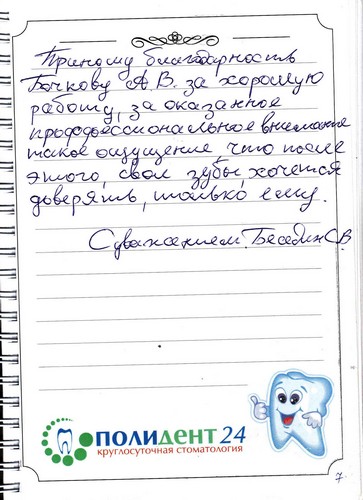 Приношу благодарность
Бочкову А.В. за хорошую
работу, за оказанное
профофессиональное внимание
такое ощущение, что после
этого, свои зубы, хочется
доверять, только ему.
С уважением. Беседин С.В.
ПОЛИДЕНТ 24
круглосуточная стоматология
7